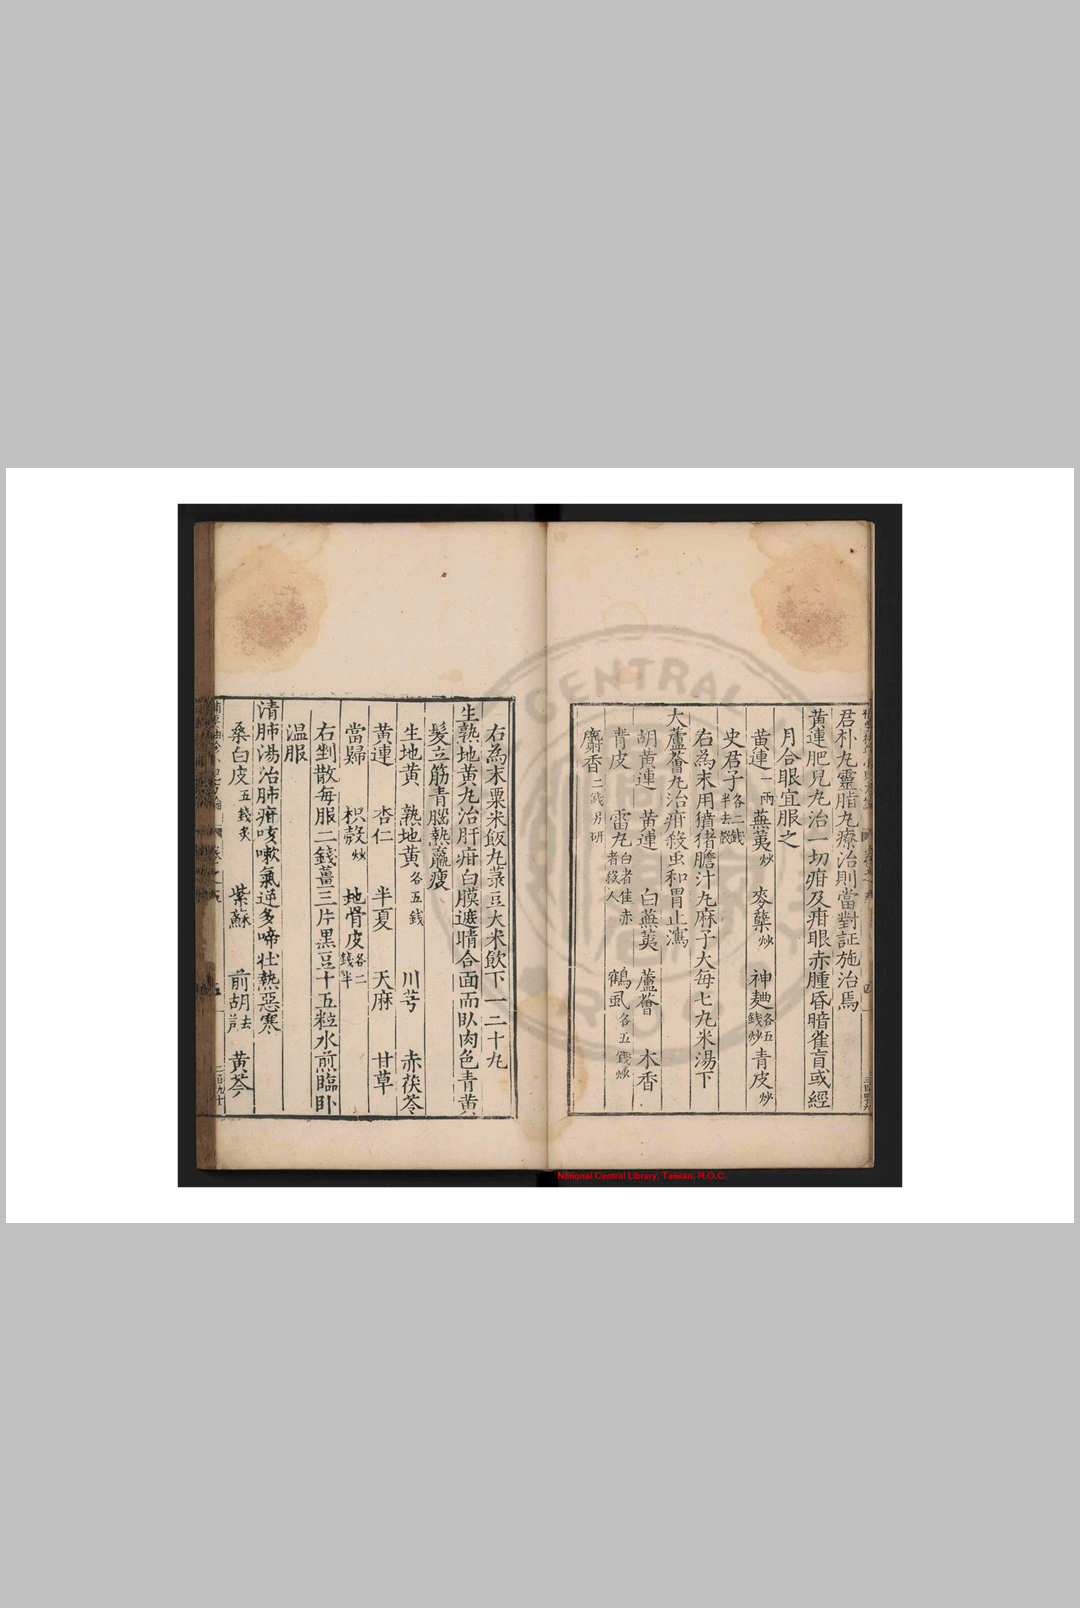 君朴丸靈脂丸療治則當對証施治焉
黃連肥兒丸治一切疳及疳眼赤腫昏暗雀盲或經
月合眼宜服之
黃連一兩 蕪荑炒 麥櫱炒 神麯各五錢炒 青皮炒
史君子各二錢半去殼
右為末用㹠猪膽汁丸麻子大每七丸米湯下
大蘆薈丸治疳殺虫和胃止瀉
胡黃連 黃連 白蕪荑 蘆薈 木香
青皮 雷丸白者佳赤者殺人 鶴虱各五錢炒
麝香二錢另研
右為末粟米飯丸菉豆大米飲下一二十丸
生熟地黃丸治肝疳白膜遮睛合面而臥肉色青黃
髮立筋青腦熱羸瘦
生地黃 熟地黃各五錢 川芎 赤茯苓
黃連 杏仁 半夏 天麻 甘草
當歸 枳殼炒 地骨皮各二錢半
右剉散每服二錢薑三片黑豆十五粒水煎臨臥
溫服
清肺湯治肺疳咳嗽氣逆多啼壯熱惡寒
桑白皮五錢炙 紫蘇 前胡去蘆 黃芩
CENTRAL
R.O.C.
National Central Library, Taiwan, R.O.C.